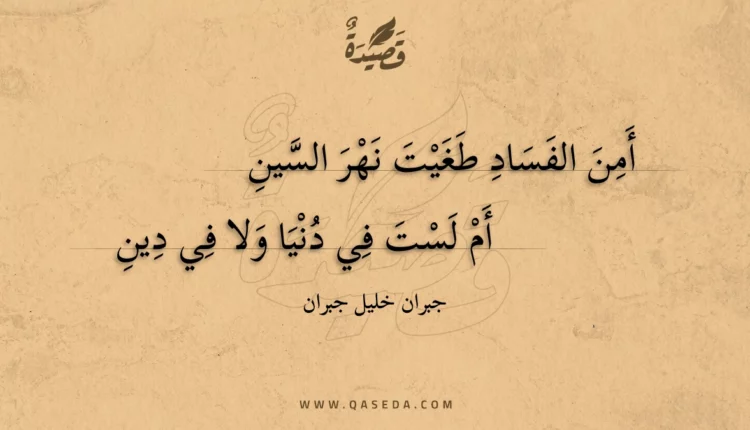 قَصِيْدَةٌ
أَمِنَ الفَسَادِ طَغَيْتَ نَهْرَ السَّينِ
أَمْ لَسْتَ فِي دُنْيَا وَلا فِي دِينِ
جبران خليل جبران
WWW.QASEDA.COM